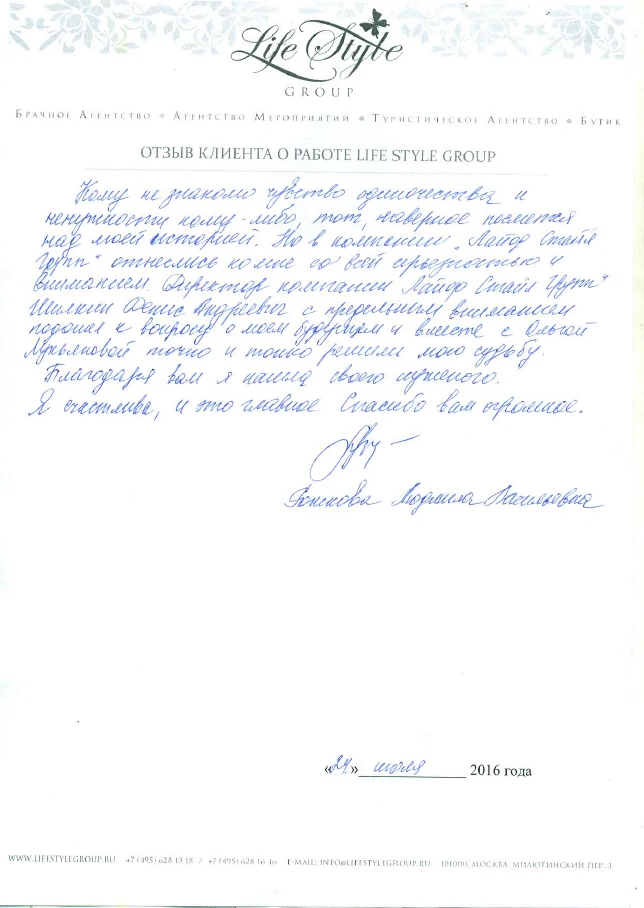 Life Style
GROUP
Брачное Агентство • Агентство Мероприятий • Туристическое Агентство • Бутик
ОТЗЫВ КЛИЕНТА О РАБОТЕ LIFE STYLE GROUP
Кому не знакомо чувство одиночества и
ненужности кому-либо, тот, наверное посмеется
над моей историей. Но в компании „Лайф Стайл
Групп" отнеслись ко мне со всей серьезностью и
вниманием. Директор компании „Лайф Стайл Групп"
Шилкин Денис Андреевич с предельным вниманием
подошел к вопросу о моем будущем и вместе с Ольгой
Лукьяновой точно и тонко решили мою судьбу.
Благодаря вам я нашла своего суженого.
Я счастлива, и это главное. Спасибо вам огромное.
Людмила Васильевна
«24» июля 2016 года
WWW.LIFESTYLEGROUP.RU +7 (495) 628 13 18 / +7 (495) 628 16 46 E-MAIL: INFO@LIFESTYLEGROUP.RU 101000, МОСКВА МИЛЮТИНСКИЙ ПЕР. 3